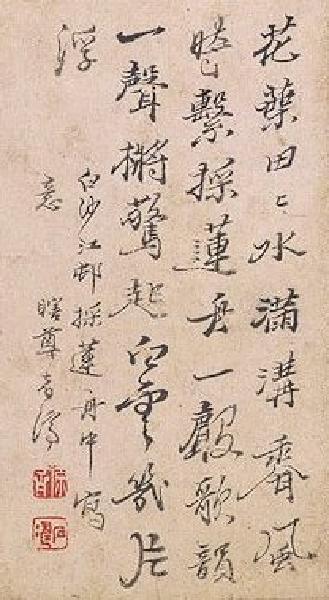 花葉田〻水滿溝香風
時繫採蓮舟一殸歌韻
一聲槳驚起白雲幾片
浮
白沙江邨採蓮舟中寫
意
瞎尊者濟